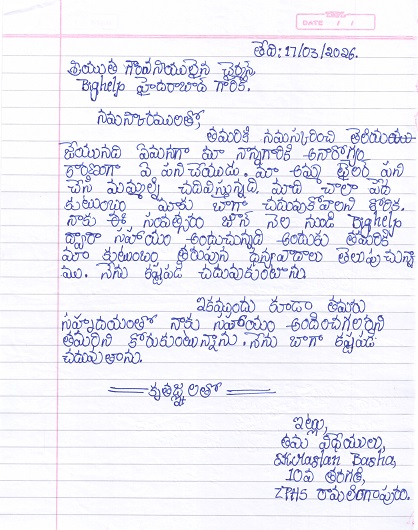 DATE / /
తేది: 17/03/2026.
శ్రీయుత గౌరవనీయులైన చైర్మన్
Bighelp హైదరాబాద్ గారికి.
నమస్కారములతో,
తమరికి నమస్కరించి తెలియజు
జేయునది ఏమనగా మా నాన్నగారికి అనారోగ్యం
కారణంగా ఏ పని చేయడు. మా అమ్మ టైలర్ పని
చేసి మమ్మల్ని చదివిస్తున్నది. మాది చాలా పేద
కుటుంబం మాకు బాగా చదువుకోవాలని కోరిక.
నాకు ఈ సంవత్సరం జూన్ నెల నుండి Bighelp
ద్వారా సహాయం అందుచున్నది అందుకు తమరికి
మా కుటుంబం తరుపున ధన్యవాదాలు తెలుపుచున్నా
ము. నేను కష్టపడి చదువుకుంటాను.
ఇకముందు కూడా తమరు
సహృదయంతో నాకు సహాయం అందించగలరని
తమరిని కోరుకుంటున్నాను. నేను బాగా కష్టపడి
చదువుతాను.
కృతజ్ఞతలతో
ఇట్లు,
తమ విధేయులు,
Basha,
10వ తరగతి,
ZPHS రామలింగాపురం.